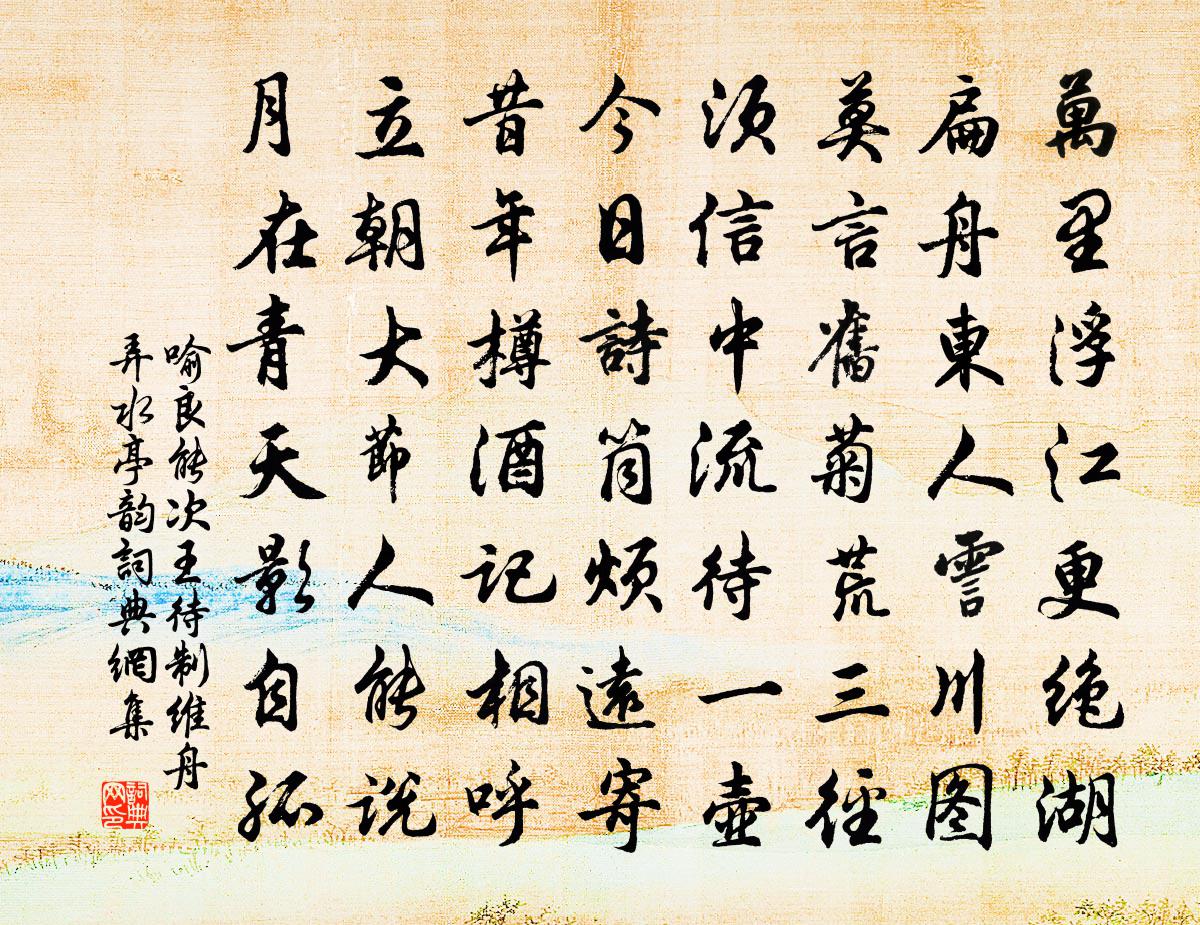 萬里浮江更绝湖
扁舟東人雲川图
莫言舊菊荒三徑
须信中流待一壺
今日詩筒烦遠寄
昔年樽酒記相呼
立朝大節人能说
月在青天影自孤
喻良能次王待制維舟
弄水亭韵詞典網集
詞典网印